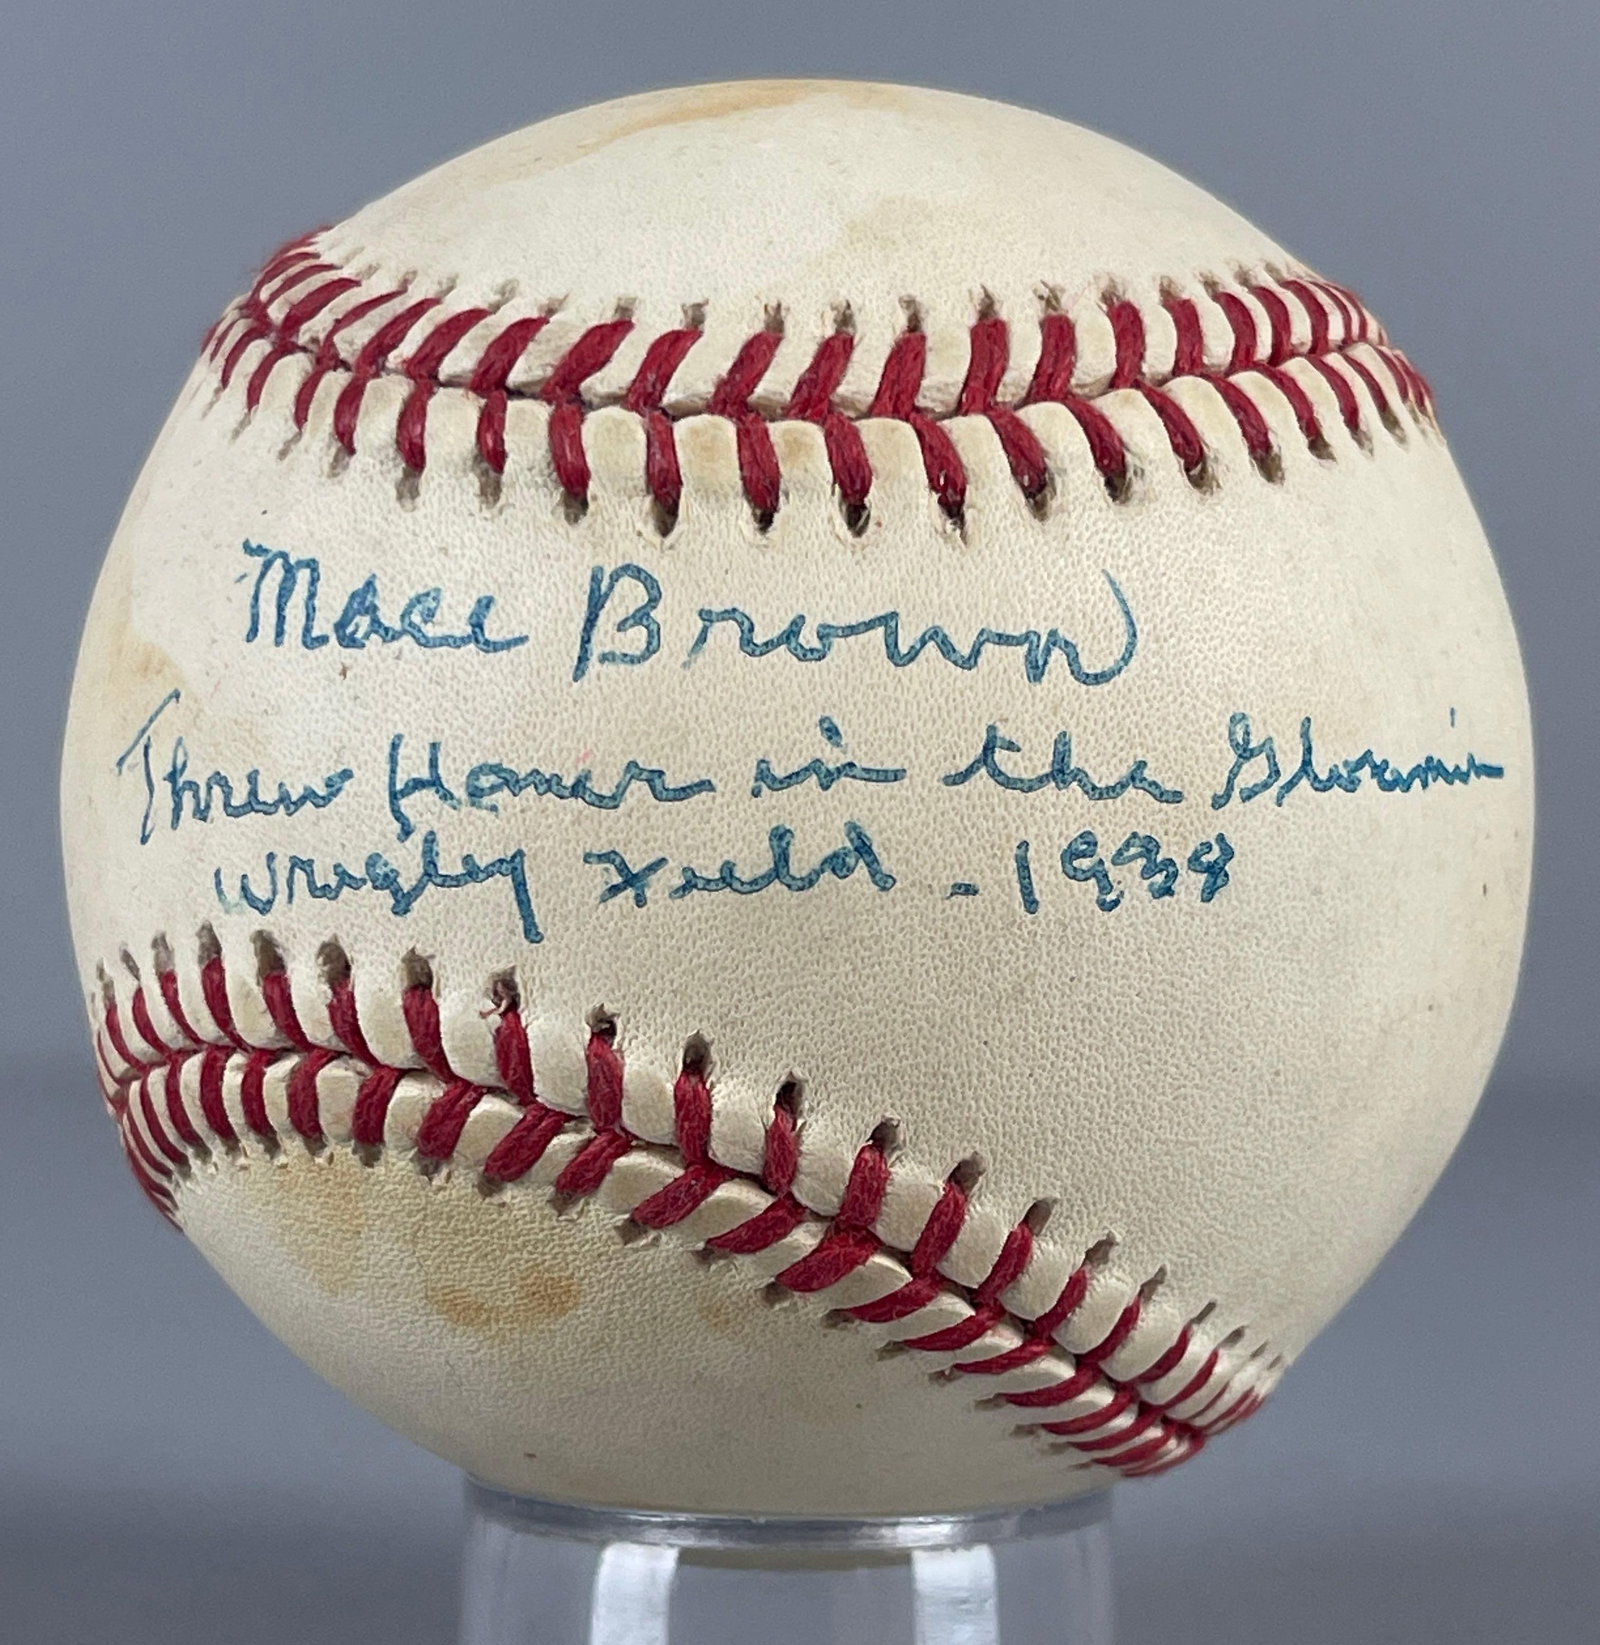 Mace Brown
Threw Homer in the Gloamin
Wrigley Field - 1938